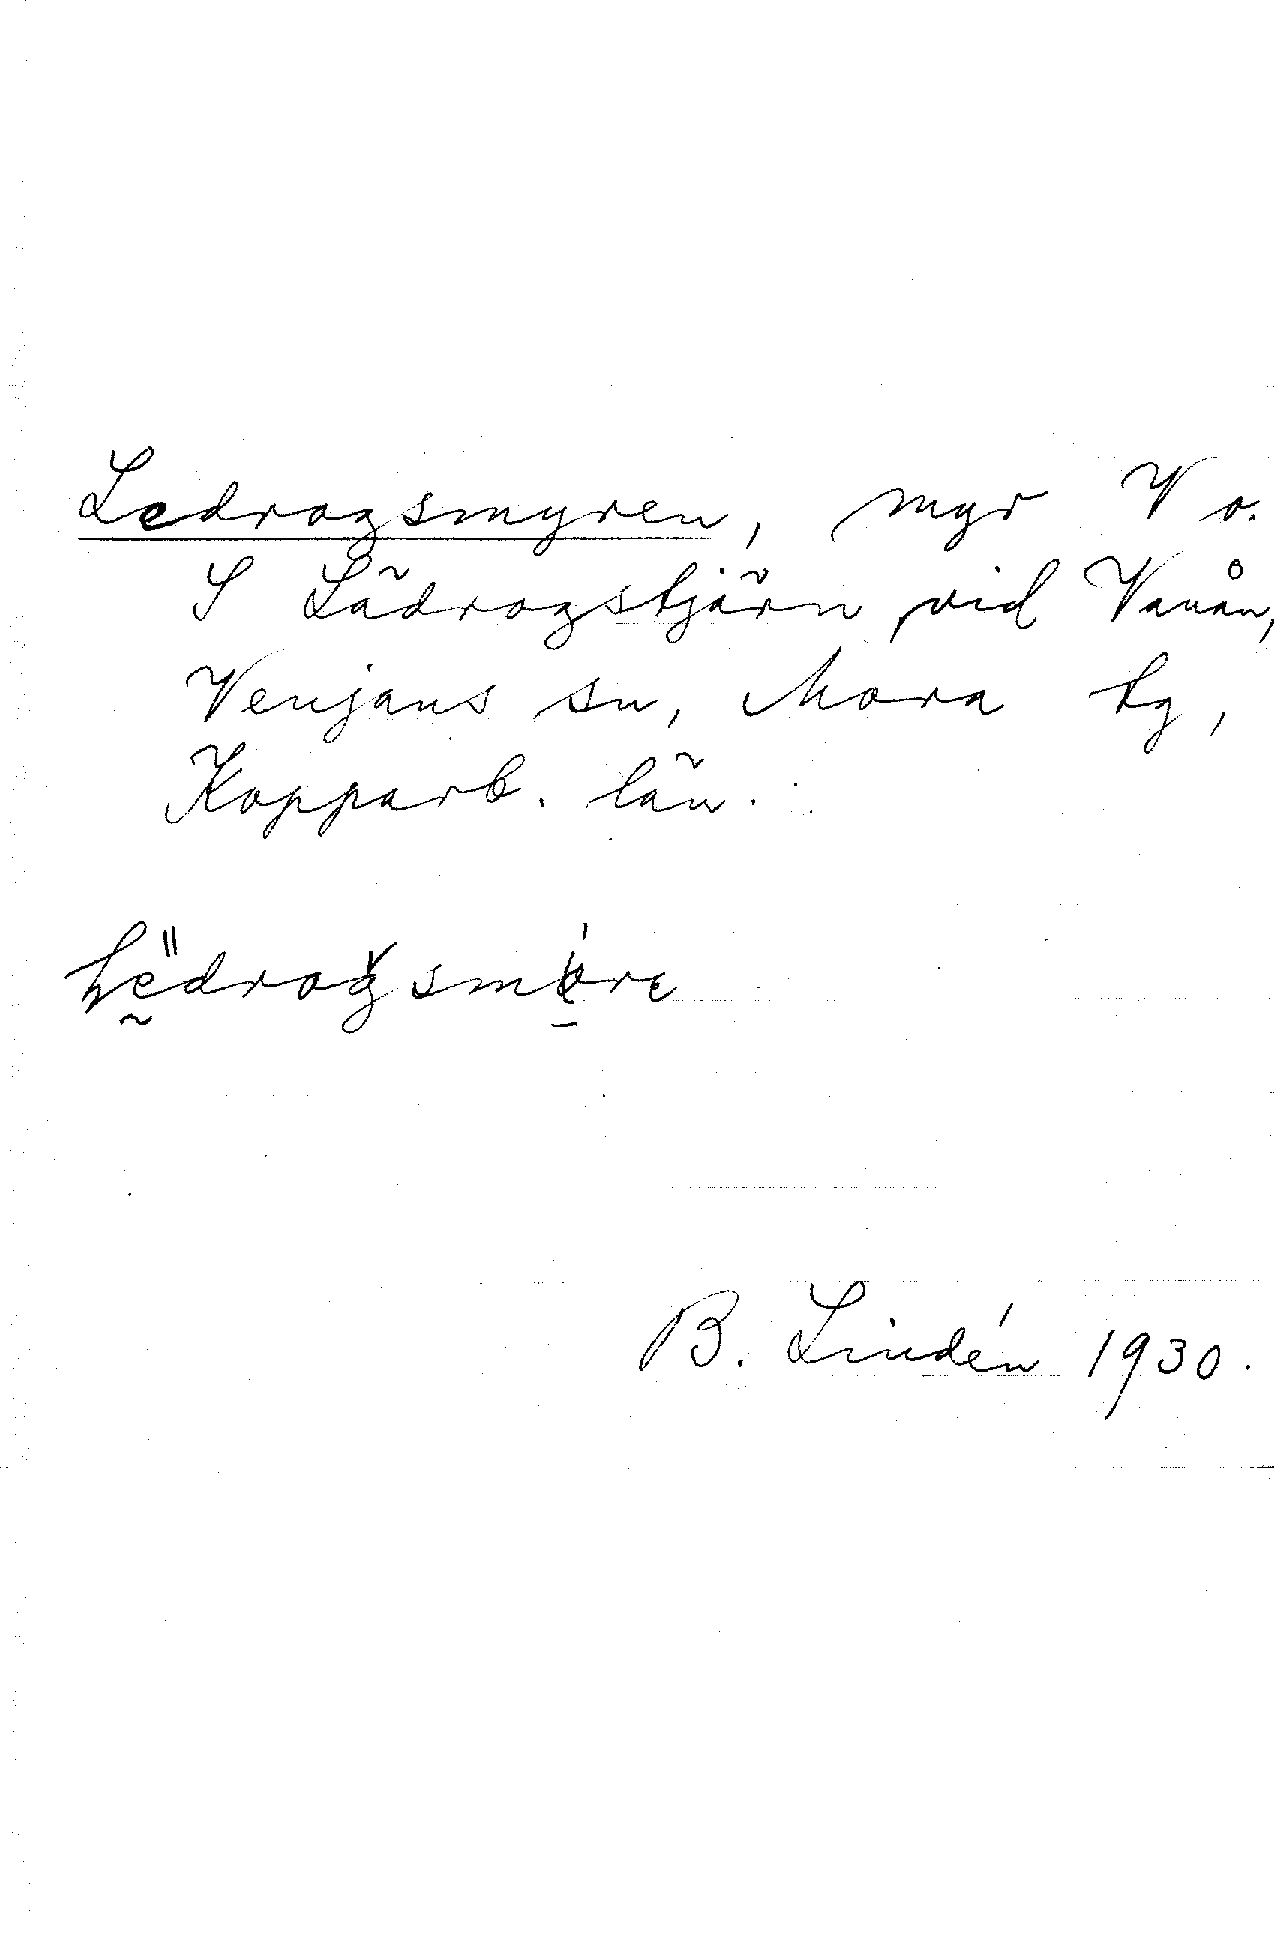 Ledrogsmyren, myr V o.
S Lädrogstjärn vid Vanån,
Venjans sn, Mora tg,
Kopparb. län.
B. Lindén 1930.